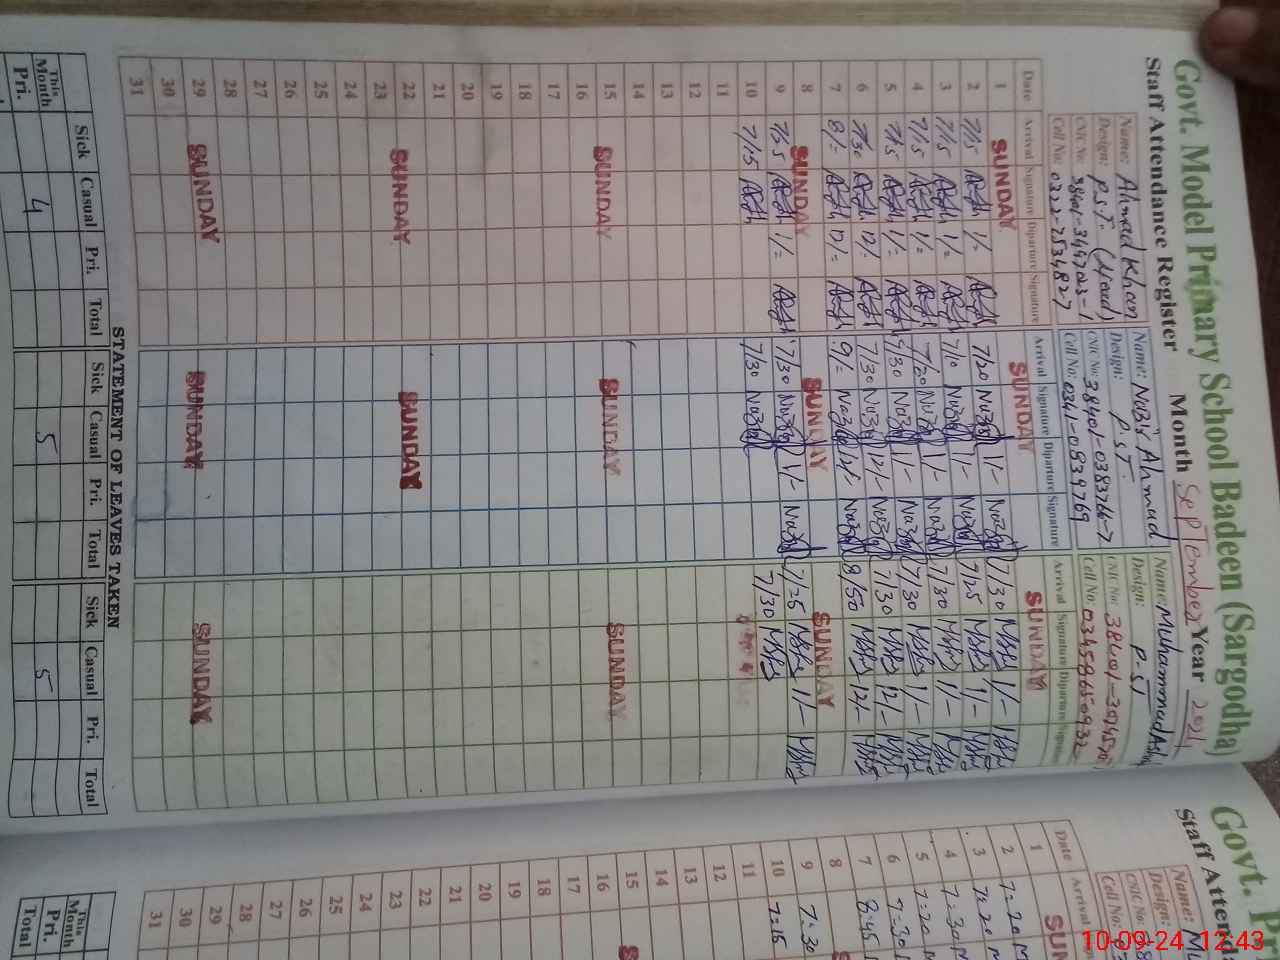 Govt. Model Primary School Badeen (Sargodha)
Staff Attendance Register Month September Year 2024
Name: Ahmad Khan
Design: P.S.T. (Head)
CNIC No: 38401-3447023-1
Cell No: 0322-7534827
Name: Nazir Ahmad
Design: P.S.T.
CNIC No: 38401-0383766-7
Cell No: 0341-0839769
Name: Muhammad
Design: P-ST
CNIC No: 38401-
Cell No: 03458650932
Date Arrival Signature Diparture Signature Arrival Signature Diparture Signature Arrival Signature Diparture Signature
1 SUNDAY SUNDAY SUNDAY
2 7/15 1/= 7/20 1/- 7/30 1/-
3 7/15 1/= 7/10 1/- 7/25 1/-
4 7/15 1/= 7/20 1/- 7/30 1/-
5 7/15 1/= 7/30 1/- 7/30 1/-
6 7/30 12/= 7/30 12/- 7/30 12/-
7 8/= 12/= 9/= 12/- 8/50 12/-
8 SUNDAY SUNDAY SUNDAY
9 7/15 1/= 7/30 1/- 7/25 1/-
10 7/15 7/30 7/30
11
12
13
14
15 SUNDAY SUNDAY SUNDAY
16
17
18
19
20
21
22 SUNDAY SUNDAY
23
24
25
26
27
28
29 SUNDAY SUNDAY SUNDAY
30
31
STATEMENT OF LEAVES TAKEN
Sick Casual Pri. Total Sick Casual Pri. Total Sick Casual Pri. Total
This Month
Pri. 4 5 5
Govt. Pri
Staff Atten
Name:
Design:
CNIC No:
Cell No:
Date Arrival
1 SUN
2 7=20
3 7=20
4 7=30
5 7=20
6 7=30
7 8=45
8
9 7=30
10 7=15
11
12
13
14
15
16
17
18
19
20
21
22
23
24
25
26
27
28
29
30
31
This Month
Pri.
Total
10-09-24 12:43